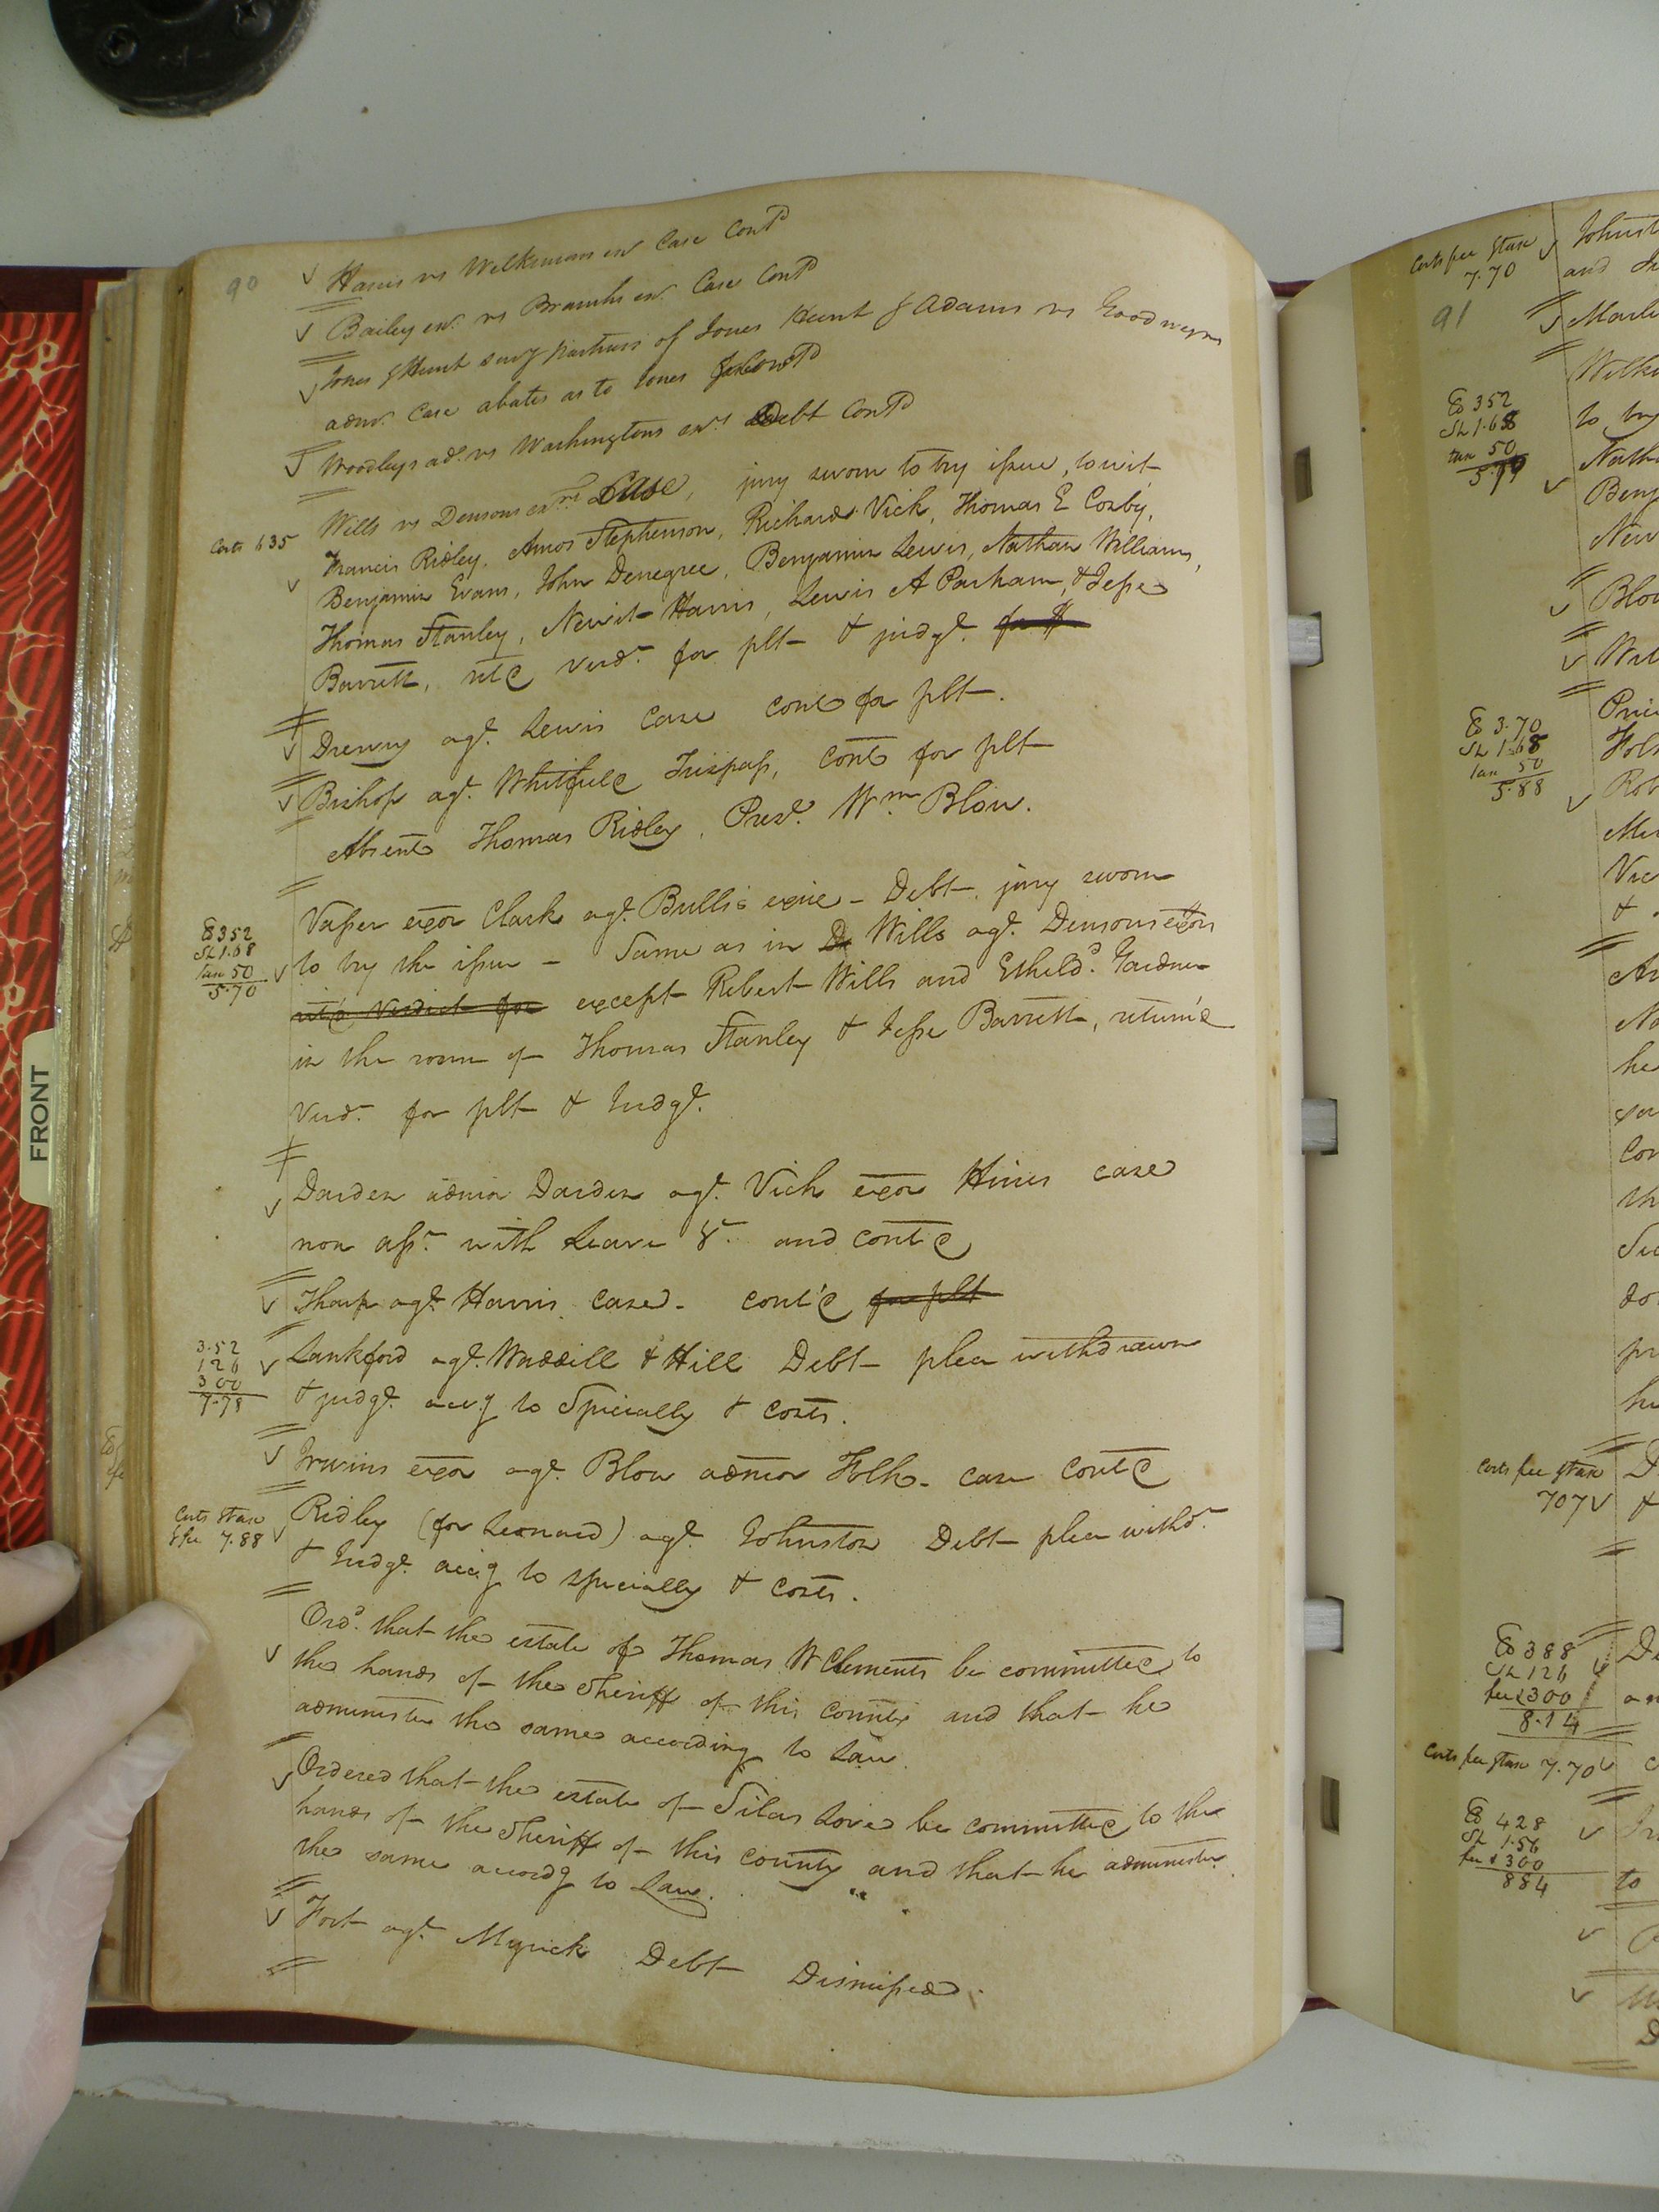 90
Harris vs Wilkinsons exr Case Contd
Bailey exr. vs Branchs exr. Case Contd
Jones & Hunt survg partners of Jones Hunt & Adams vs Goodwyns
admr. Case abates as to Jones & Contd
Woodleys ad. vs Washingtons exr. Debt Contd
Costs 635
Wills vs Densons exrs. Case, jury sworn to try issue, towit
Francis Ridley, Amos Stephenson, Richard Vick, Thomas E Cosby,
Benjamin Evans, John Denegree, Benjamin Lewis, Nathan Williams,
Thomas Stanley, Newit Harris, Lewis A Parham, & Jesse
Barrett, retd verd. for plt & judgt. for $
Drewry agt. Lewis Case contd for plt.
Bishop agt. Whitfield Trespass, contd for plt
Absent Thomas Ridley, Prest. Wm Blow.
352
Sh 1.68
tax 50
5.70
Vasser exor Clark agt. Bulls exrie - Debt, jury sworn
to try the issue - Same as in De Wills agt. Densons exors
ret'd verdict for except Robert Wills and Etheld. Gardner
in the room of Thomas Stanley & Jesse Barrett, return'd
Verd. for plt & Judgt.
Darden admor Darden agt. Vick exor Hines case
non asst. with leave &. and cont'd
Tharp agt. Harris case. cont'd for plt
3.52
1 26
3 00
7.78
Lankford agt. Waddill & Hill Debt plea withdrawn
& judgt. accg to Specialty & costs.
Irwins exor agt. Blow admor Holk. case cont'd
Costs & tax
& fee 7.88
Ridley (for Leonard) agt. Johnston Debt plea withd.
& Judgt. accg to specialty & costs.
Ord. that the estate of Thomas W Clements be committed to
the hands of the Sheriff of this county and that he
administer the same according to Law.
Ordered that the estate of Silas Love be committed to the
hands of the Sheriff of this county and that he administer
the same accordg to Law.
Fort agt. Myrick Debt Dismissed.
FRONT
Costs fee & tax
7.70
91
352
Sh 1.68
tax 50
3.70
Sh 1.68
tax 50
5.88
Costs fee & tax
707
388
Sh 126
fee 300
8.14
Costs fee & tax 7.70
428
Sh 1.56
fee & 300
884